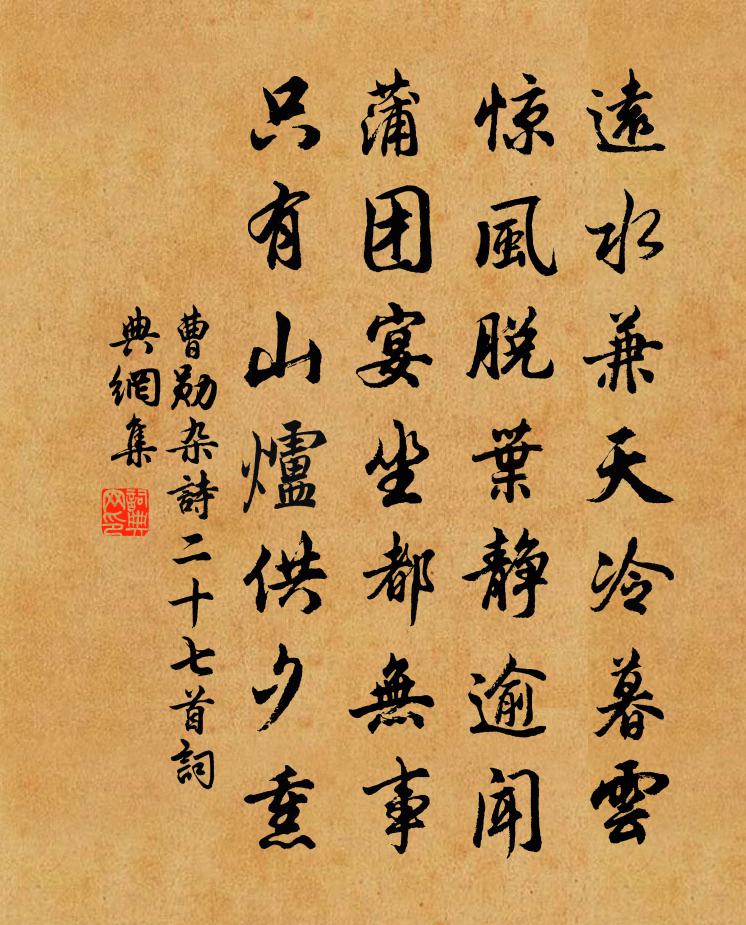 遠水兼天冷暮雲
惊風脱葉静逾聞
蒲团宴坐都無事
只有山爐供夕熏
曹勛杂詩二十七首詞
典網集
詞典網印